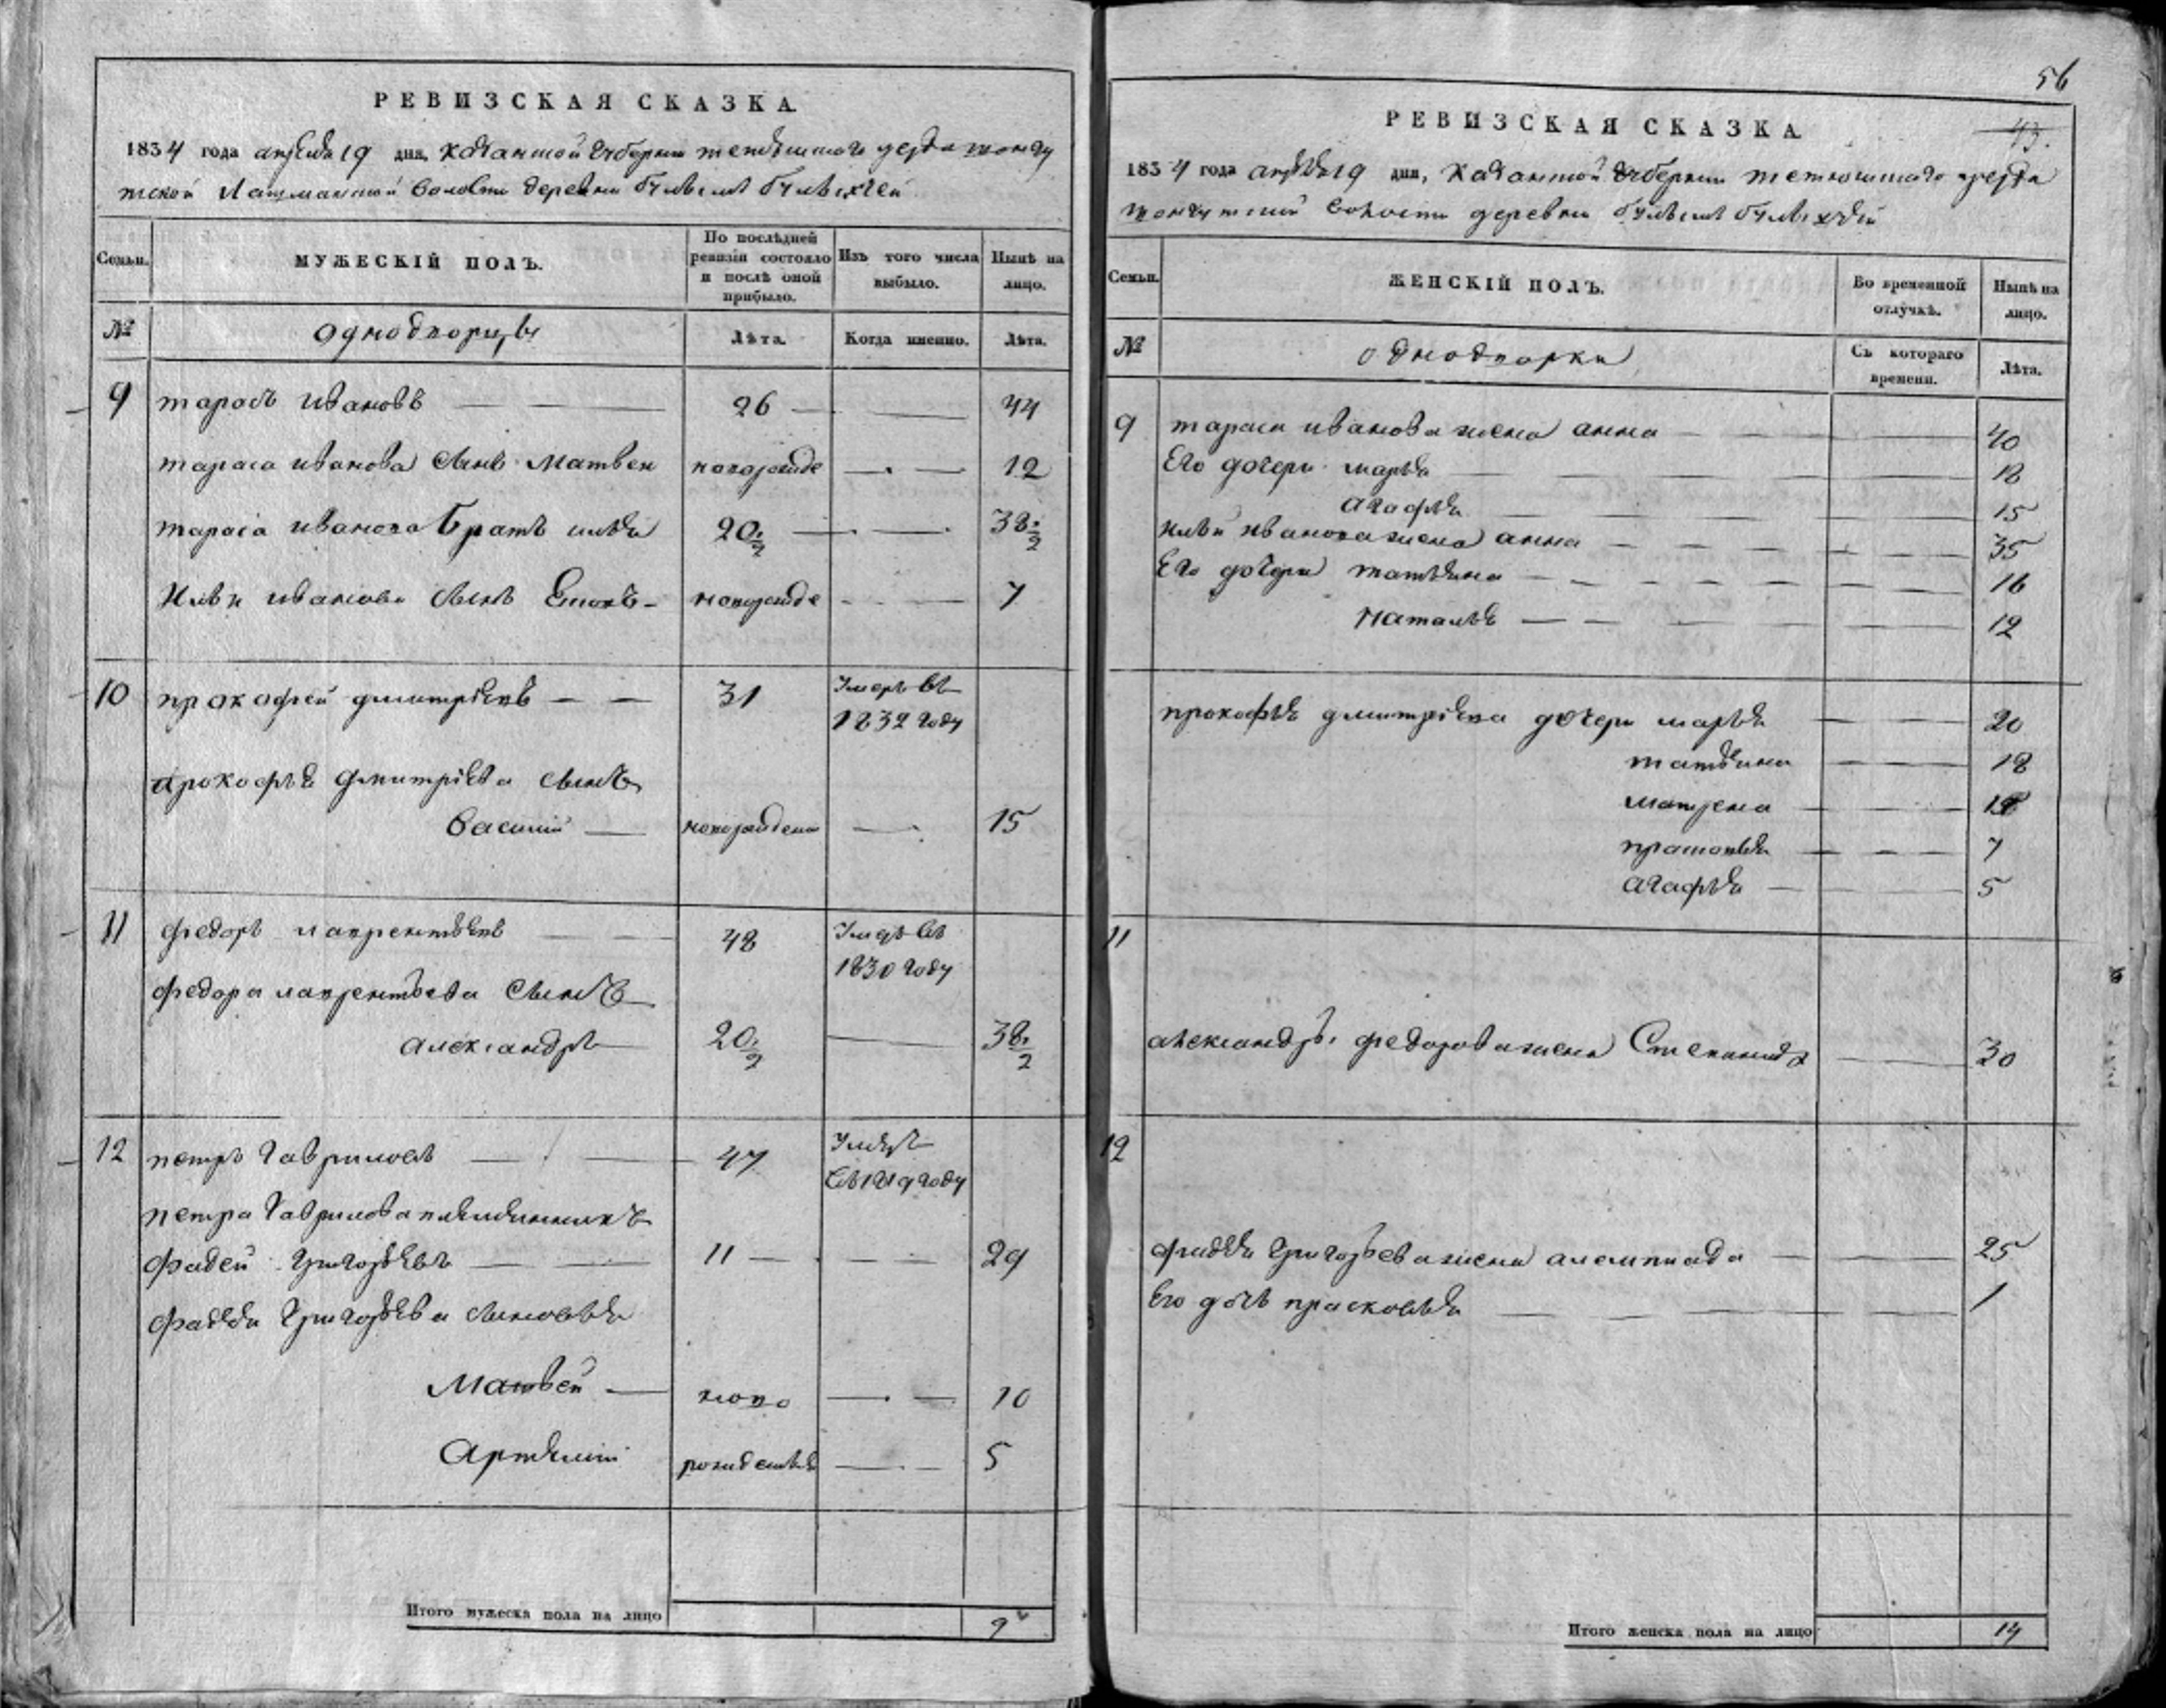 РЕВИЗСКАЯ СКАЗКА
1834 года апреля 19 дня, казанской губернии тетюшскаго уезда
лашманской волости деревни
Семьи.
МУЖЕСКІЙ ПОЛЪ.
По послѣдней ревизіи состояло и послѣ оной прибыло.
Изъ того числа выбыло.
Нынѣ на лицо.
№
однодворцы
Лѣта.
Когда именно.
Лѣта.
9 тарасъ Ивановъ 26 44
тараса иванова сынъ Матвеи новорожде 12
тараса иванова братъ илья 20 1/2 38 1/2
Ильи иванова сынъ новорожде 7
10 прокофеи дмитріевъ 31 Умеръ въ
1832 году
прокофья дмитріева сынъ
василий новорожденъ 15
11 федоръ лаврентьевъ 48 Умеръ въ
1830 году
федора лаврентьева сынъ
александръ 20 1/2 38 1/2
12 петръ гавриловъ 47 Умеръ
въ 1819 году
петра гаврилова племянникъ
фадей григорьевъ 11 29
фадея григорьева сыновья
Матвей ново 10
Артемий рожденные 5
Итого мужеска пола на лицо 9
56
43.
РЕВИЗСКАЯ СКАЗКА
1834 года апреля 19 дня, казанской губернии тетюшскаго уезда
волости деревни
Семьи.
ЖЕНСКІЙ ПОЛЪ.
Во временной отлучкѣ.
Нынѣ на лицо.
№
однодворки
Съ котораго времени.
Лѣта.
9 тараса иванова жена анна 40
Его дочери марья 18
агафья 15
Ильи иванова жена анна 35
Его дочери татьяна 16
наталья 12
прокофья дмитріева дочери марья 20
татьяна 18
матрена
прасковья 7
агафья 5
11
александръ федорова жена Степанида 30
12
фадея григорьева жена алемпиада 25
Его дочь прасковья 1
Итого женска пола на лицо 14